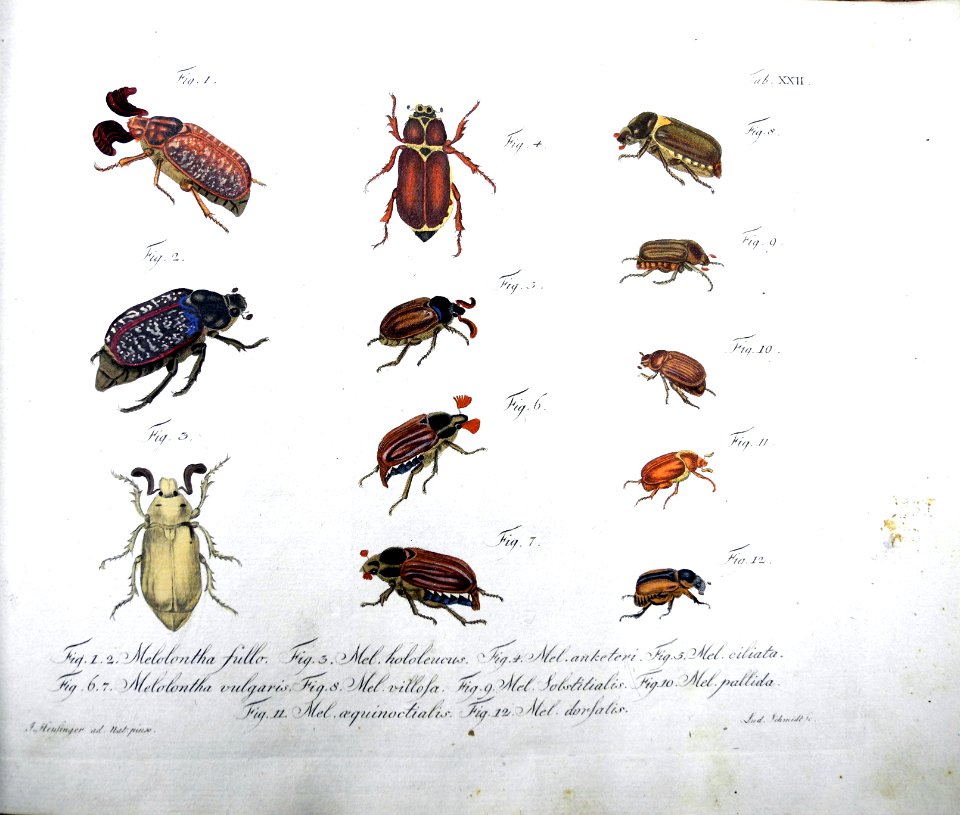 Fig. 1.
Tab. XXII.
Fig. 4.
Fig. 8.
Fig. 2.
Fig. 9.
Fig. 5.
Fig. 10.
Fig. 6.
Fig. 3.
Fig. 11.
Fig. 7.
Fig. 12.
Fig. 1. 2. Melolontha fullo. Fig. 3. Mel. hololeucus. Fig. 4. Mel. anketeri. Fig. 5. Mel. ciliata.
Fig. 6. 7. Melolontha vulgaris. Fig. 8. Mel. villosa. Fig. 9. Mel. Solstitialis. Fig. 10. Mel. pallida.
Fig. 11. Mel. æquinoctialis. Fig. 12. Mel. dorsalis.
J. Heusinger ad. Nat. pinx.
Lud. Schmidt sc.